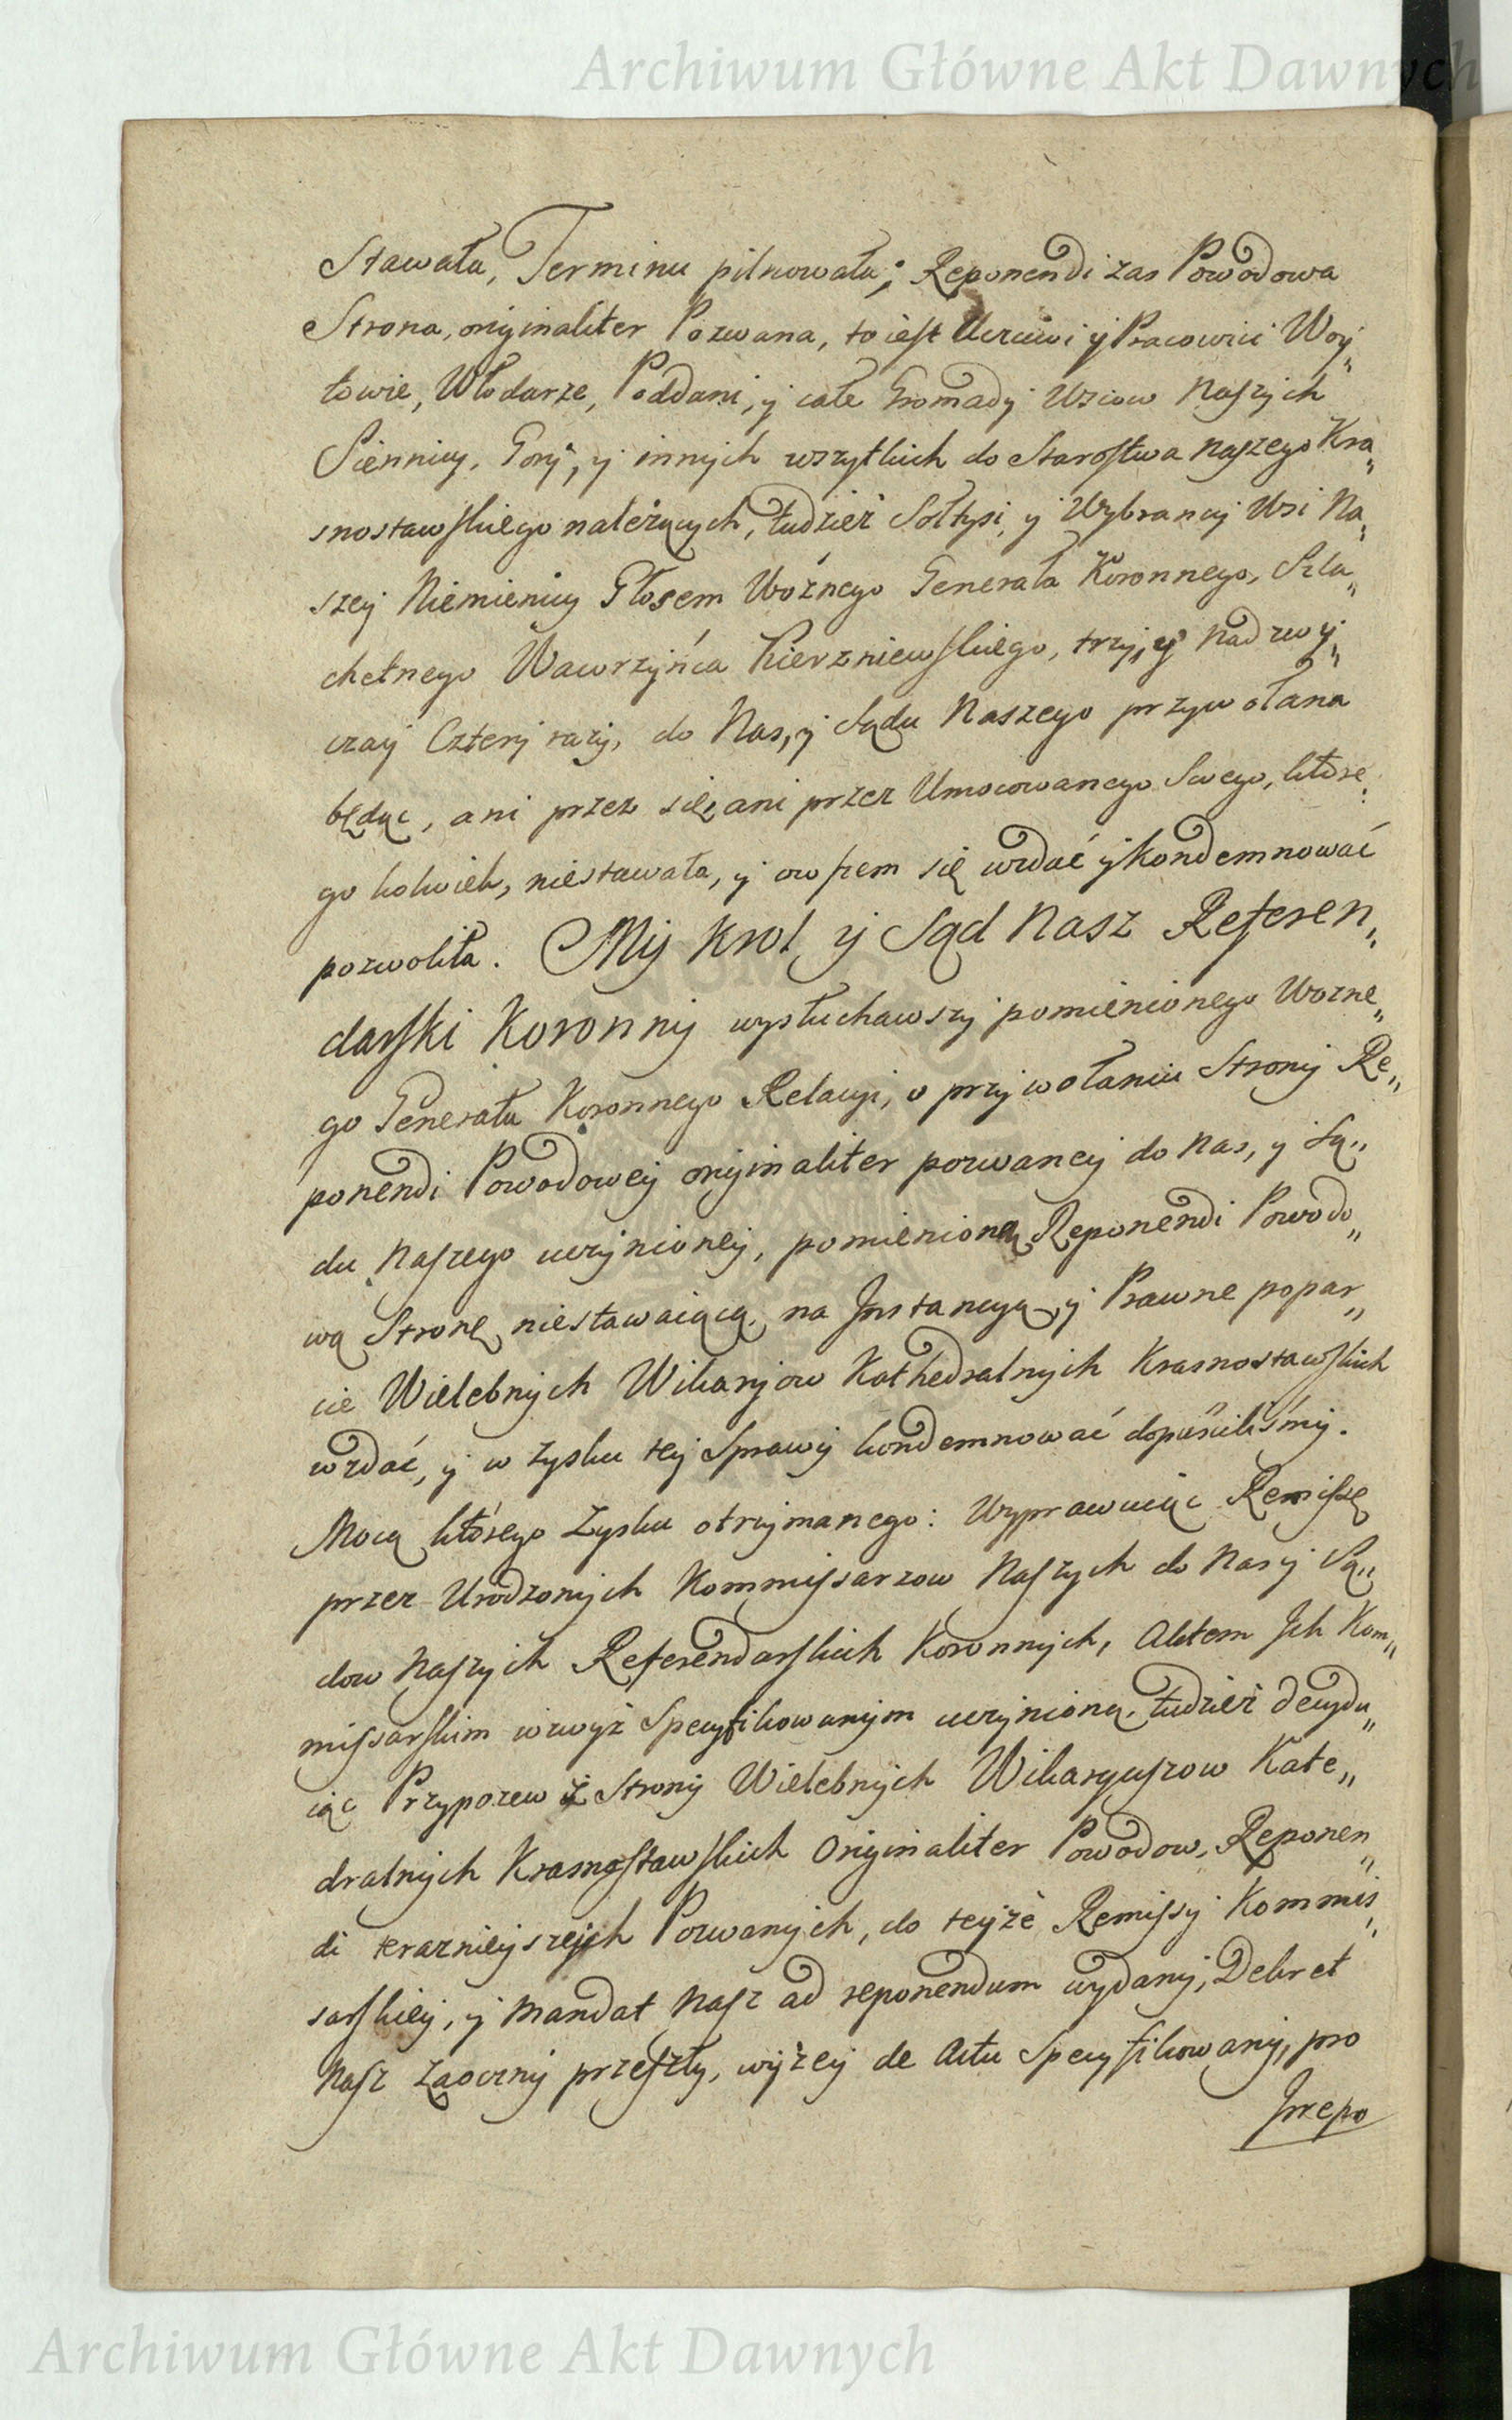 Archiwum Główne Akt Dawnych
Stawała, Terminu pilnowała; Reponendi zas Powodowa
Strona, originaliter Pozwana, to iest Uczciwi y Pracowici Woy„
towie, Włodarze, Poddani, y całe Gromady Wsiow Naszych
Siennicy, Gory, y innych wszytkich do Starostwa naszego Kra„
snostawskiego należących, tudzież Sołtysi, y Wybrancy Wsi Na„
szey Niemienicy Głosem Woźnego Generała Koronnego, Szla„
chetnego Wawrzyńca Kierzniewskiego, trzy, y nadzwy„
czay Cztery razy, do Nas, y Sądu Naszego przywołana
będąc, ani przez się, ani przez Umocowanego Swego, które„
go kolwiek, niestawała, y owszem się wzdać y kondemnować
pozwoliła. My Krol y Sąd Nasz Referen„
darski Koronny wysłuchawszy pomienionego Wozne„
go Generała Koronnego Relacyi, o przywołaniu Strony Re„
ponendi Powodowey originaliter pozwaney do Nas, y Są„
du Naszego uczynioney, pomienioną Reponendi Powodo„
wą Stronę niestawaiącą, na Jnstancyą, y Prawne popar„
cie Wielebnych Wikaryow Kathedralnych Krasnostawskich
wzdać, y w zysku tey Sprawy kondemnować dopuściliśmy.
Mocą którego Zysku otrzymanego: Wyprawuiąc Remissę
przez Urodzonych Kommissarzow Naszych do Nas y Są„
dow Naszych Referendarskich Koronnych, Aktem Jch Kom„
missarskim wzwyż Specyfikowanym uczynioną, tudzież decydu„
iąc Przypozew z Strony Wielebnych Wikaryuszow Kate„
dralnych Krasnostawskich Originaliter Powodow, Reponen„
di teraznieyszych Pozwanych, do teyże Remissy Kommis„
sarskiey, y Mandat Nasz ad reponendum wydany, Dekret
Nasz Zaoczny przeszły, wyżey de Actu Specyfikowany, pro
Jrrepo
Archiwum Główne Akt Dawnych